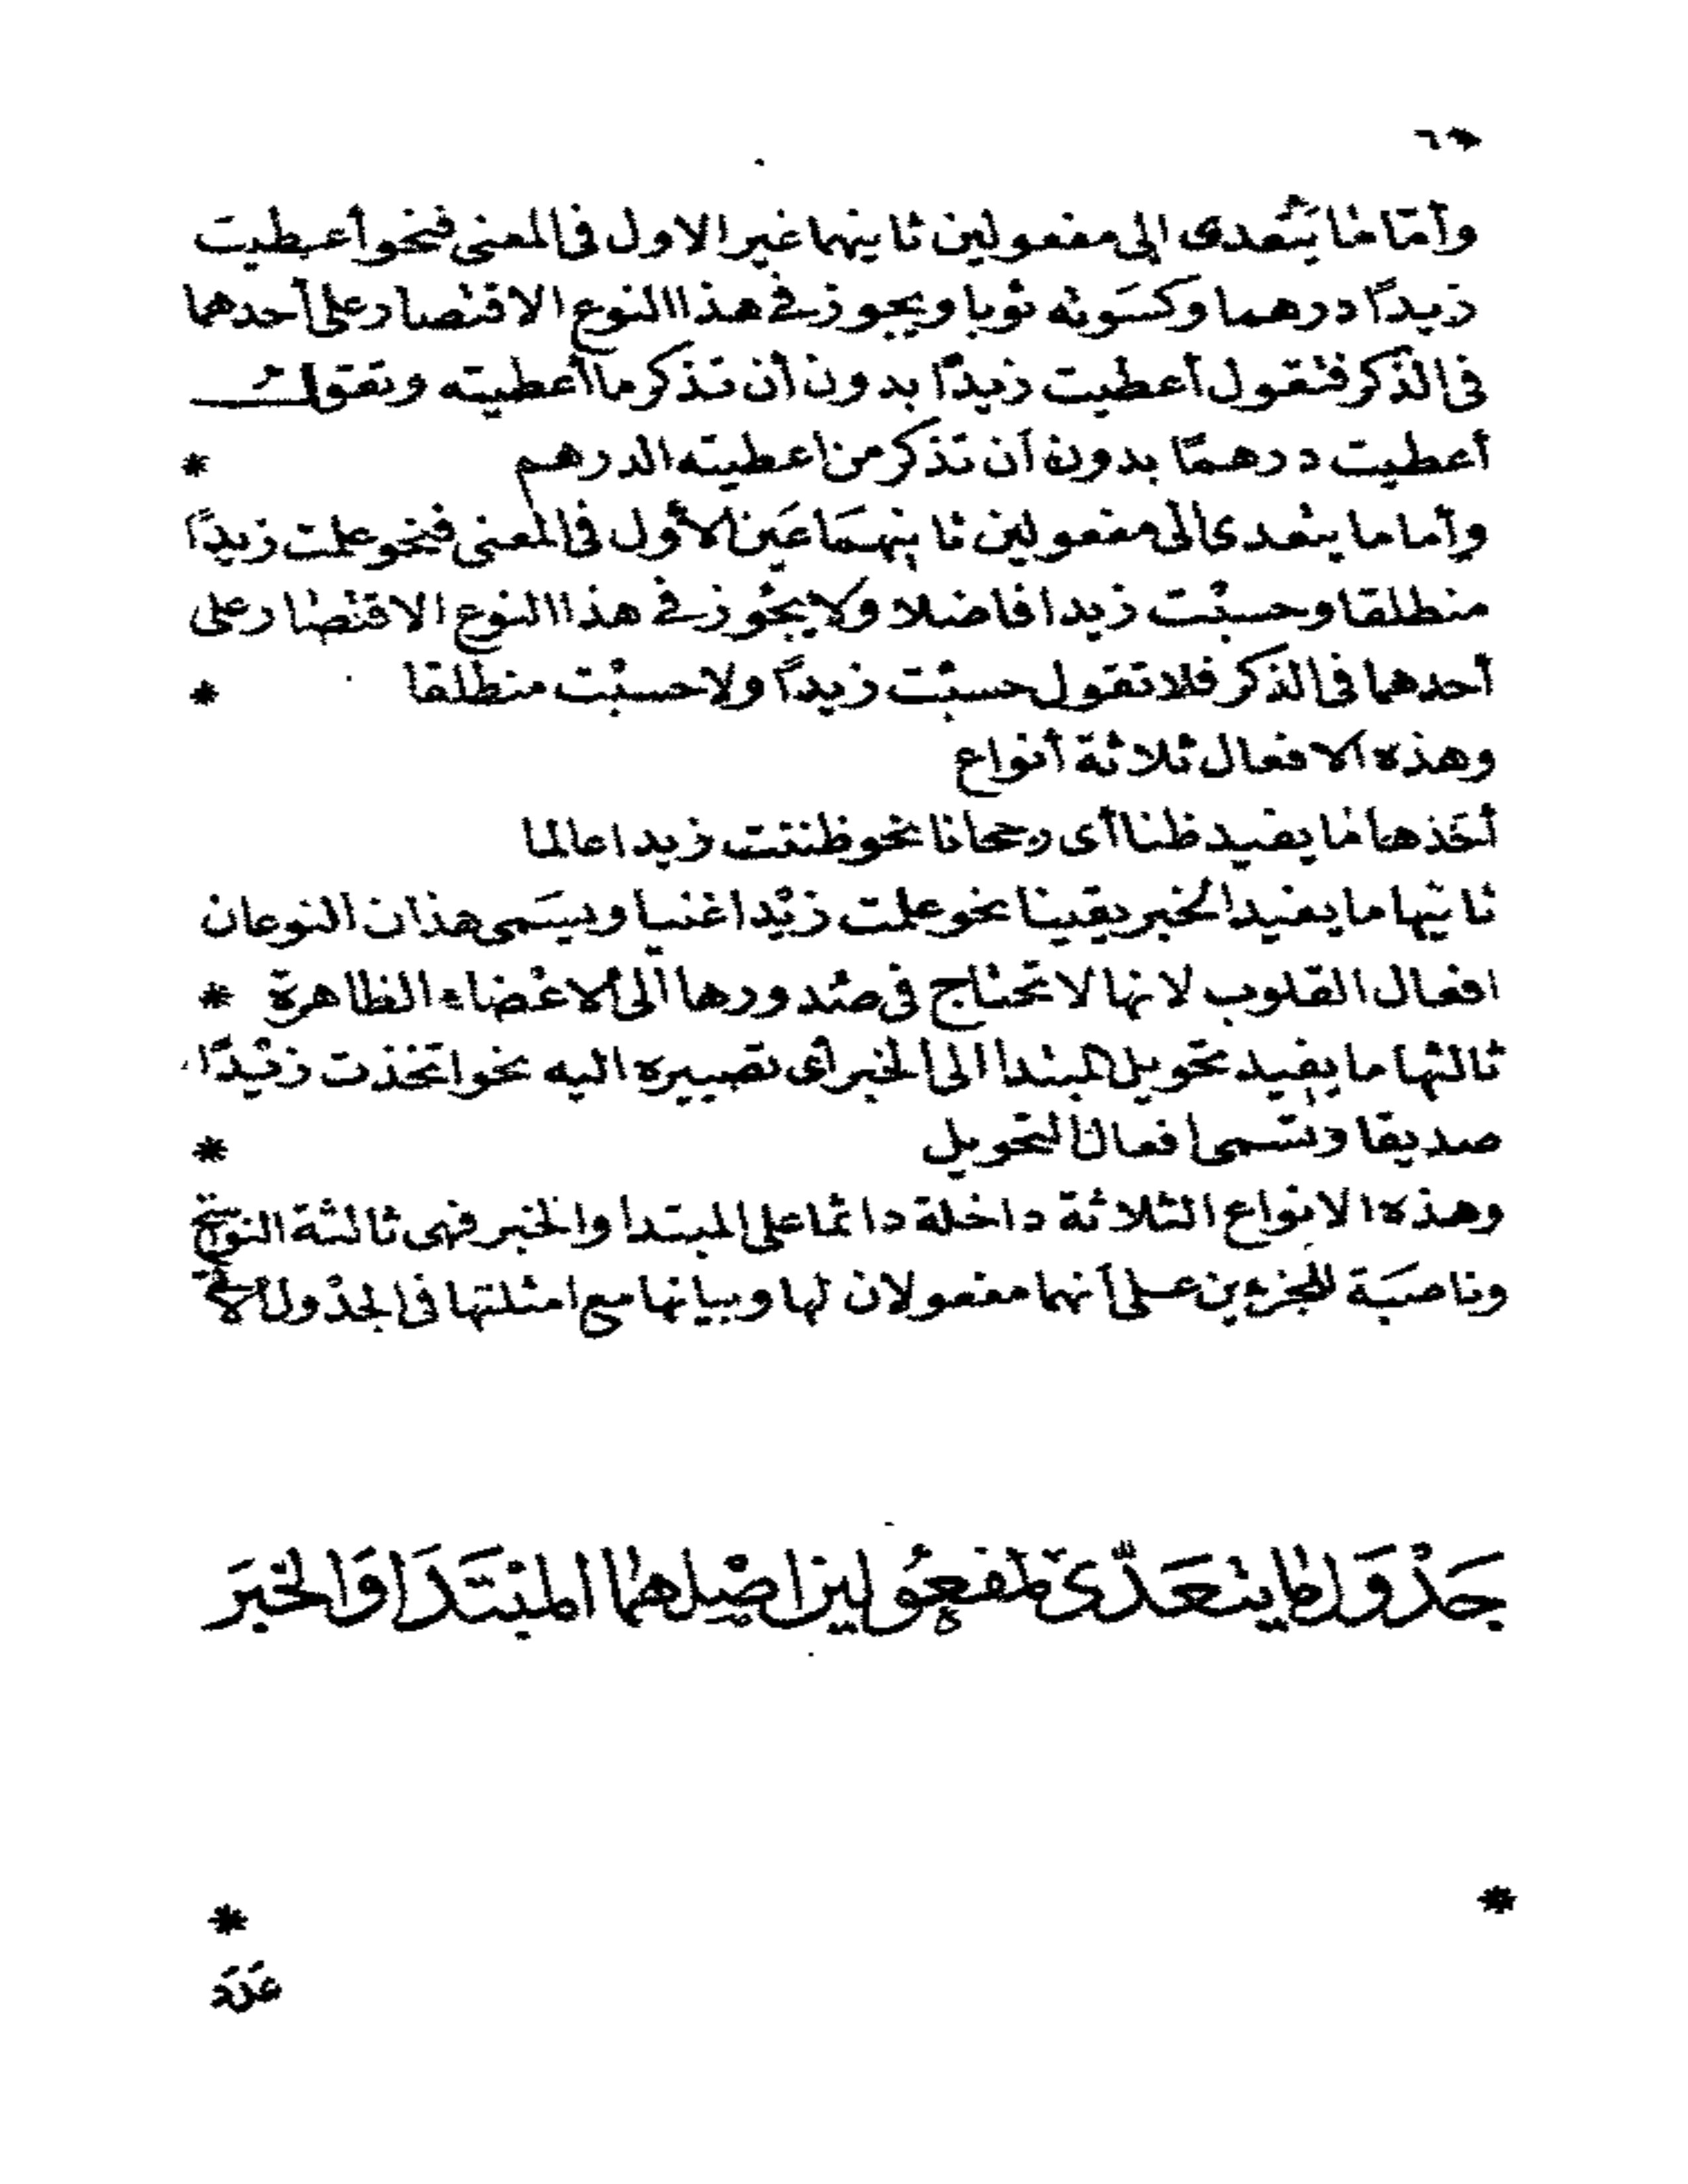 وأمّا ما يتعدى الى مفعولين ثانيهما غير الاول فى المعنى فنحو أعطيت
زيدًا درهما وكسَوته ثوبا ويجوز فى هذا النوع الاقتصار على أحدهما
فى الذكر فتقول أعطيت زيدًا بدون أن تذكر ما أعطيته وتقول
أعطيت درهمًا بدون أن تذكر من اعطيته الدرهم *
وأما ما يتعدى الى مفعولين ثانيهمَا عَين الأول فى المعنى فنحو علمت زيدًا
منطلقا وحسبْت زيدا فاضلا ولا يجُوز فى هذا النوع الاقتصار على
أحدهما فى الذكر فلا تقول حسبْت زيدًا ولا حسبْت منطلقا *
وهذه الافعال ثلاثة أنواع
أحَدها ما يفيد ظنا أى رجحانا نحو ظننت زيدا عالما
ثانيها ما يفيد الخبر يقينا نحو علمت زيْدا غنيا ويسَمى هذان النوعان
افعال القلوب لانها لا تحتاج فى صْدورها الى الاعْضاء الظاهرة *
ثالثها ما يفيد تحويل المبتدا الى الخبر أى تصييره اليه نحو اتخذت زيْدًا
صديقا وتسمى افعال التحويل *
وهذه الانواع الثلاثة داخلة دائما على المبتدا والخبر فهى ثالثة النواسخ
وناصبَة للجزءين على أنهما مفعولان لها وبيانها مع امثلتها فى الجدْول الآتى
جَدْوَل ما يتعَدّى لمفعُولين اصْلهما المبْتَدَا وَالخبَر
* *
عَدَد